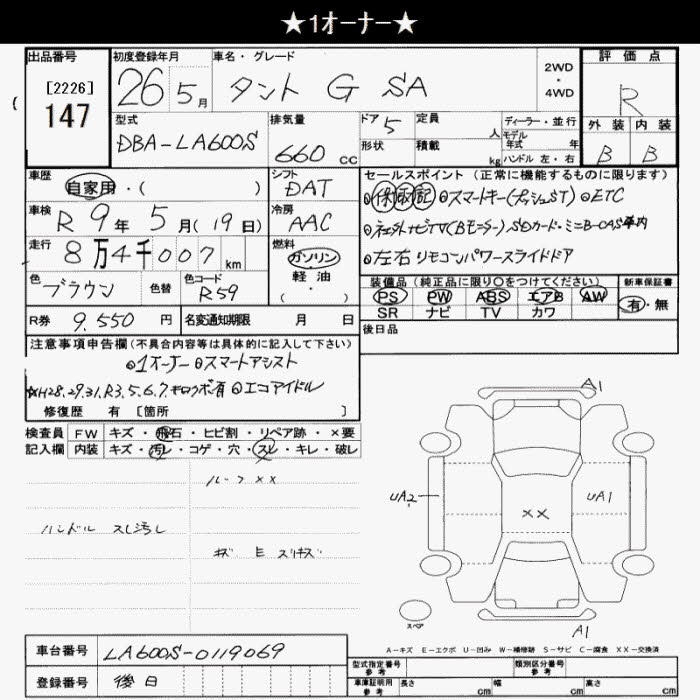 ★1オーナー★
出品番号 初度登録年月 車名・グレード 2WD・4WD 評価点
[2226] 147
26 5月 タント G SA R
型式 排気量 ドア 定員 ディーラー・並行 外装 内装
DBA-LA600S 660 cc 5 人 モデル年式 年 B B
形状 積載 kg ハンドル 左・右
車歴 シフト セールスポイント(正常に機能するものに限ります)
自家用・( ) DAT
⊙保取記 ⊙スマートキー(プッシュST) ⊙ETC
車検 冷房
R 9年 5月(19日) AAC
⊙社外ナビTV(Bモニター) SDカード・ミニB-CAS車内
走行 燃料
8万4千007km ガソリン
⊙左右リモコンパワースライドドア
軽油
・( )
色 色替 色コード
ブラウン R59
装備品(純正品に限り○をつけてください) 新車保証書
PS PW ABS エアB AW 有・無
SR ナビ TV カワ
R券 9.550円 名変通知期限 月 日
後日品
注意事項申告欄(不具合内容等は具体的に記入して下さい)
⊙1オーナー ⊙スマートアシスト
☆H28.29.31.R3.5.6.7.キロクボ有 ⊙エコアイドル
修復歴 有 [箇所 ]
検査員 FW キズ・飛石・ヒビ割・リペア跡・×要
記入欄 内装 キズ・汚レ・コゲ・穴・スレ・キレ・破レ
ルーフ ××
ハンドル スレ汚レ
キズ E スリキズ
A1
UA2 UA1
××
スペア
A1
A-キズ E-エクボ U-凹み W-補修跡 S-サビ C-腐食 XX-交換済
車台番号 LA600S-0119069
登録番号 後日
型式指定番号 参考 類別区分番号 参考
車庫証明用 参考 長さ cm 幅 cm 高さ cm